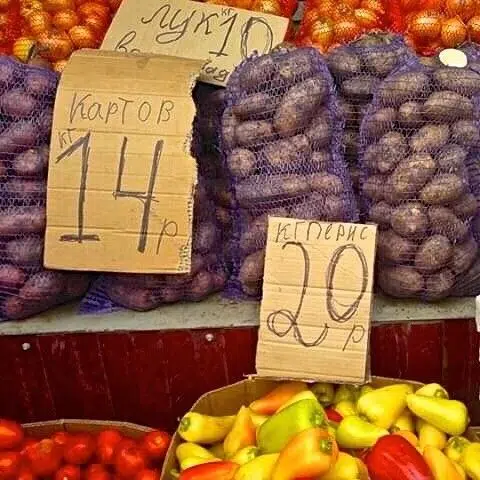 лук кг 10
Картов
кг 14 р
кг Перис
20 р